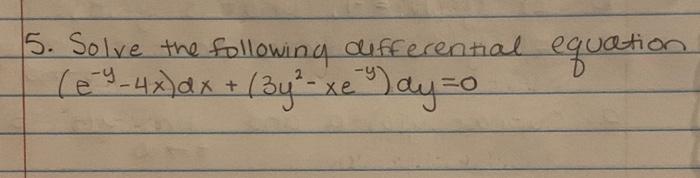 5. Solve the following differential equation
(e⁻ʸ-4x)dx + (3y²-xe⁻ʸ)dy=0